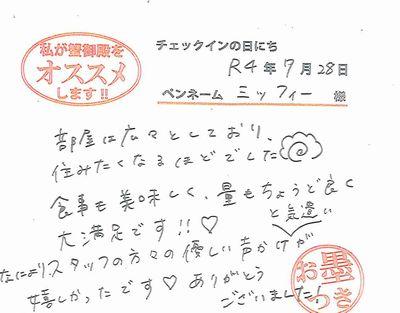 私が蟹御殿を
オススメ
します!!
チェックインの日にち
R4年9月28日
ペンネーム ミッフィー 様
部屋に広々としており、
住みたくなるほどでした
食事も美味しく、量もちょうど良く
大満足です!!♡
と気遣い
なによりスタッフの方々の優しい声かけが
嬉しかったです♡ ありがとう
ございました!
お墨
つき